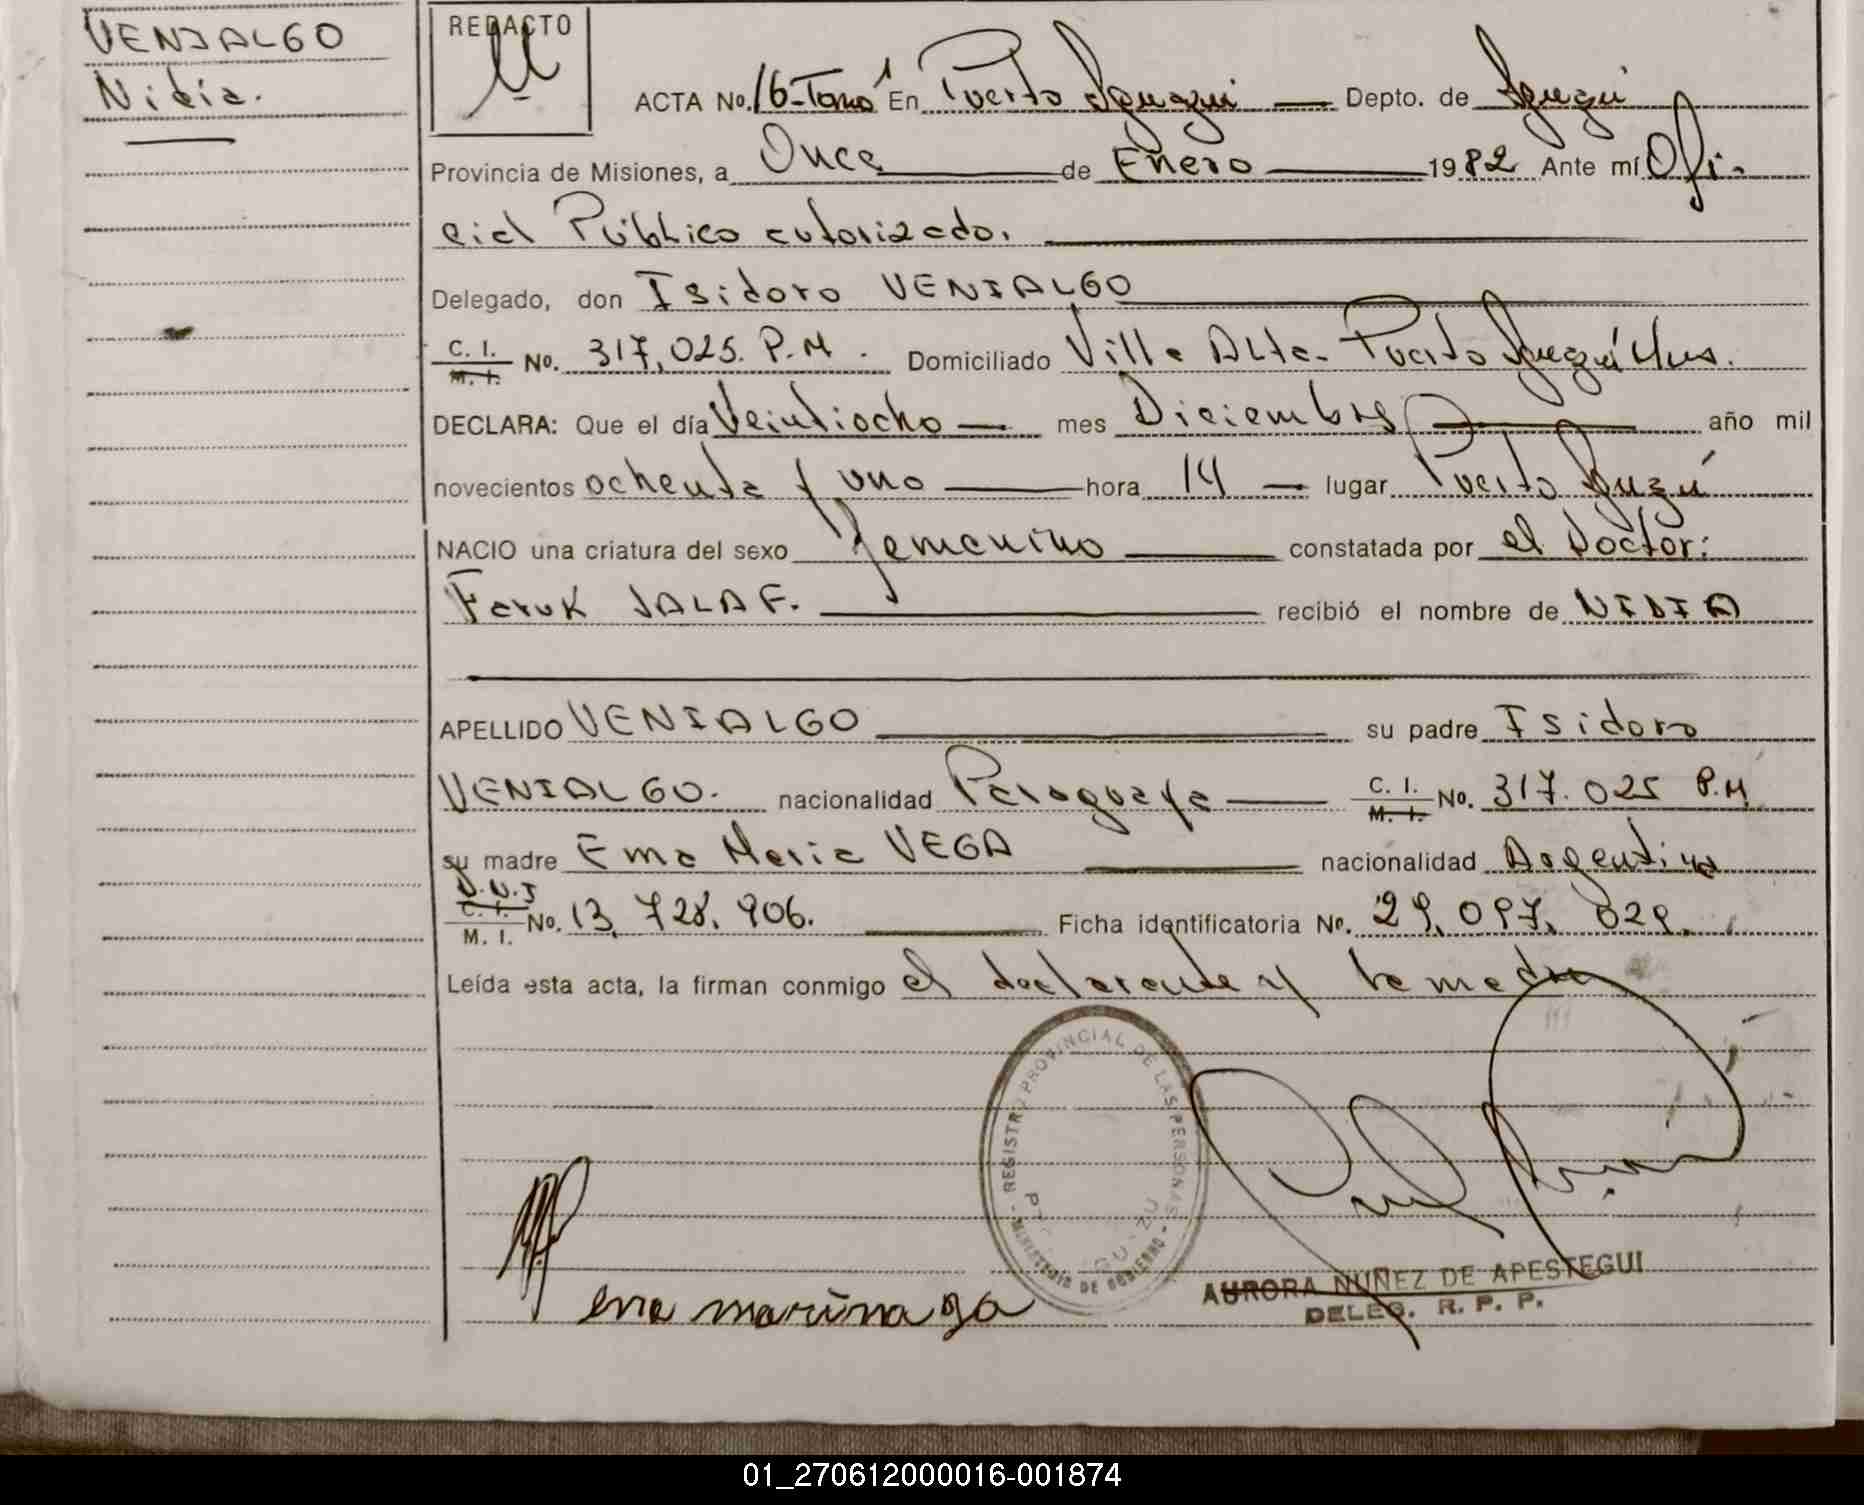 VENIALGO
Nidia.
REDACTO
ACTA No. 16-Tomo 1 En Puerto Iguazú Depto. de Iguazú
Provincia de Misiones, a Once de Enero 1982 Ante mí Ofi-
cial Público autorizado.
Delegado, don Isidoro VENIALGO
C. I. M. I. No. 317,025. P.M. Domiciliado Villa Alta- Puerto Iguazú Mns.
DECLARA: Que el día Veintiocho mes Diciembre año mil
novecientos ochenta y uno hora 14 lugar Puerto Iguzú
NACIO una criatura del sexo femenino constatada por el Doctor:
Faruk JALAF. recibió el nombre de NIDIA
APELLIDO VENIALGO su padre Isidoro
VENIALGO. nacionalidad Paraguaya C. I. M. I. No. 317.025 P.M.
su madre Ema Maria VEGA nacionalidad Argentina
D.N.I C. I. M. I. No. 13,728,906. Ficha identificatoria No. 29,097,029.
Leída esta acta, la firman conmigo el declarante y la madre
REGISTRO PROVINCIAL DE LAS PERSONAS
MINISTERIO DE GOBIERNO
AURORA NUÑEZ DE APESTEGUI
DELEG. R. P. P.
01_270612000016-001874